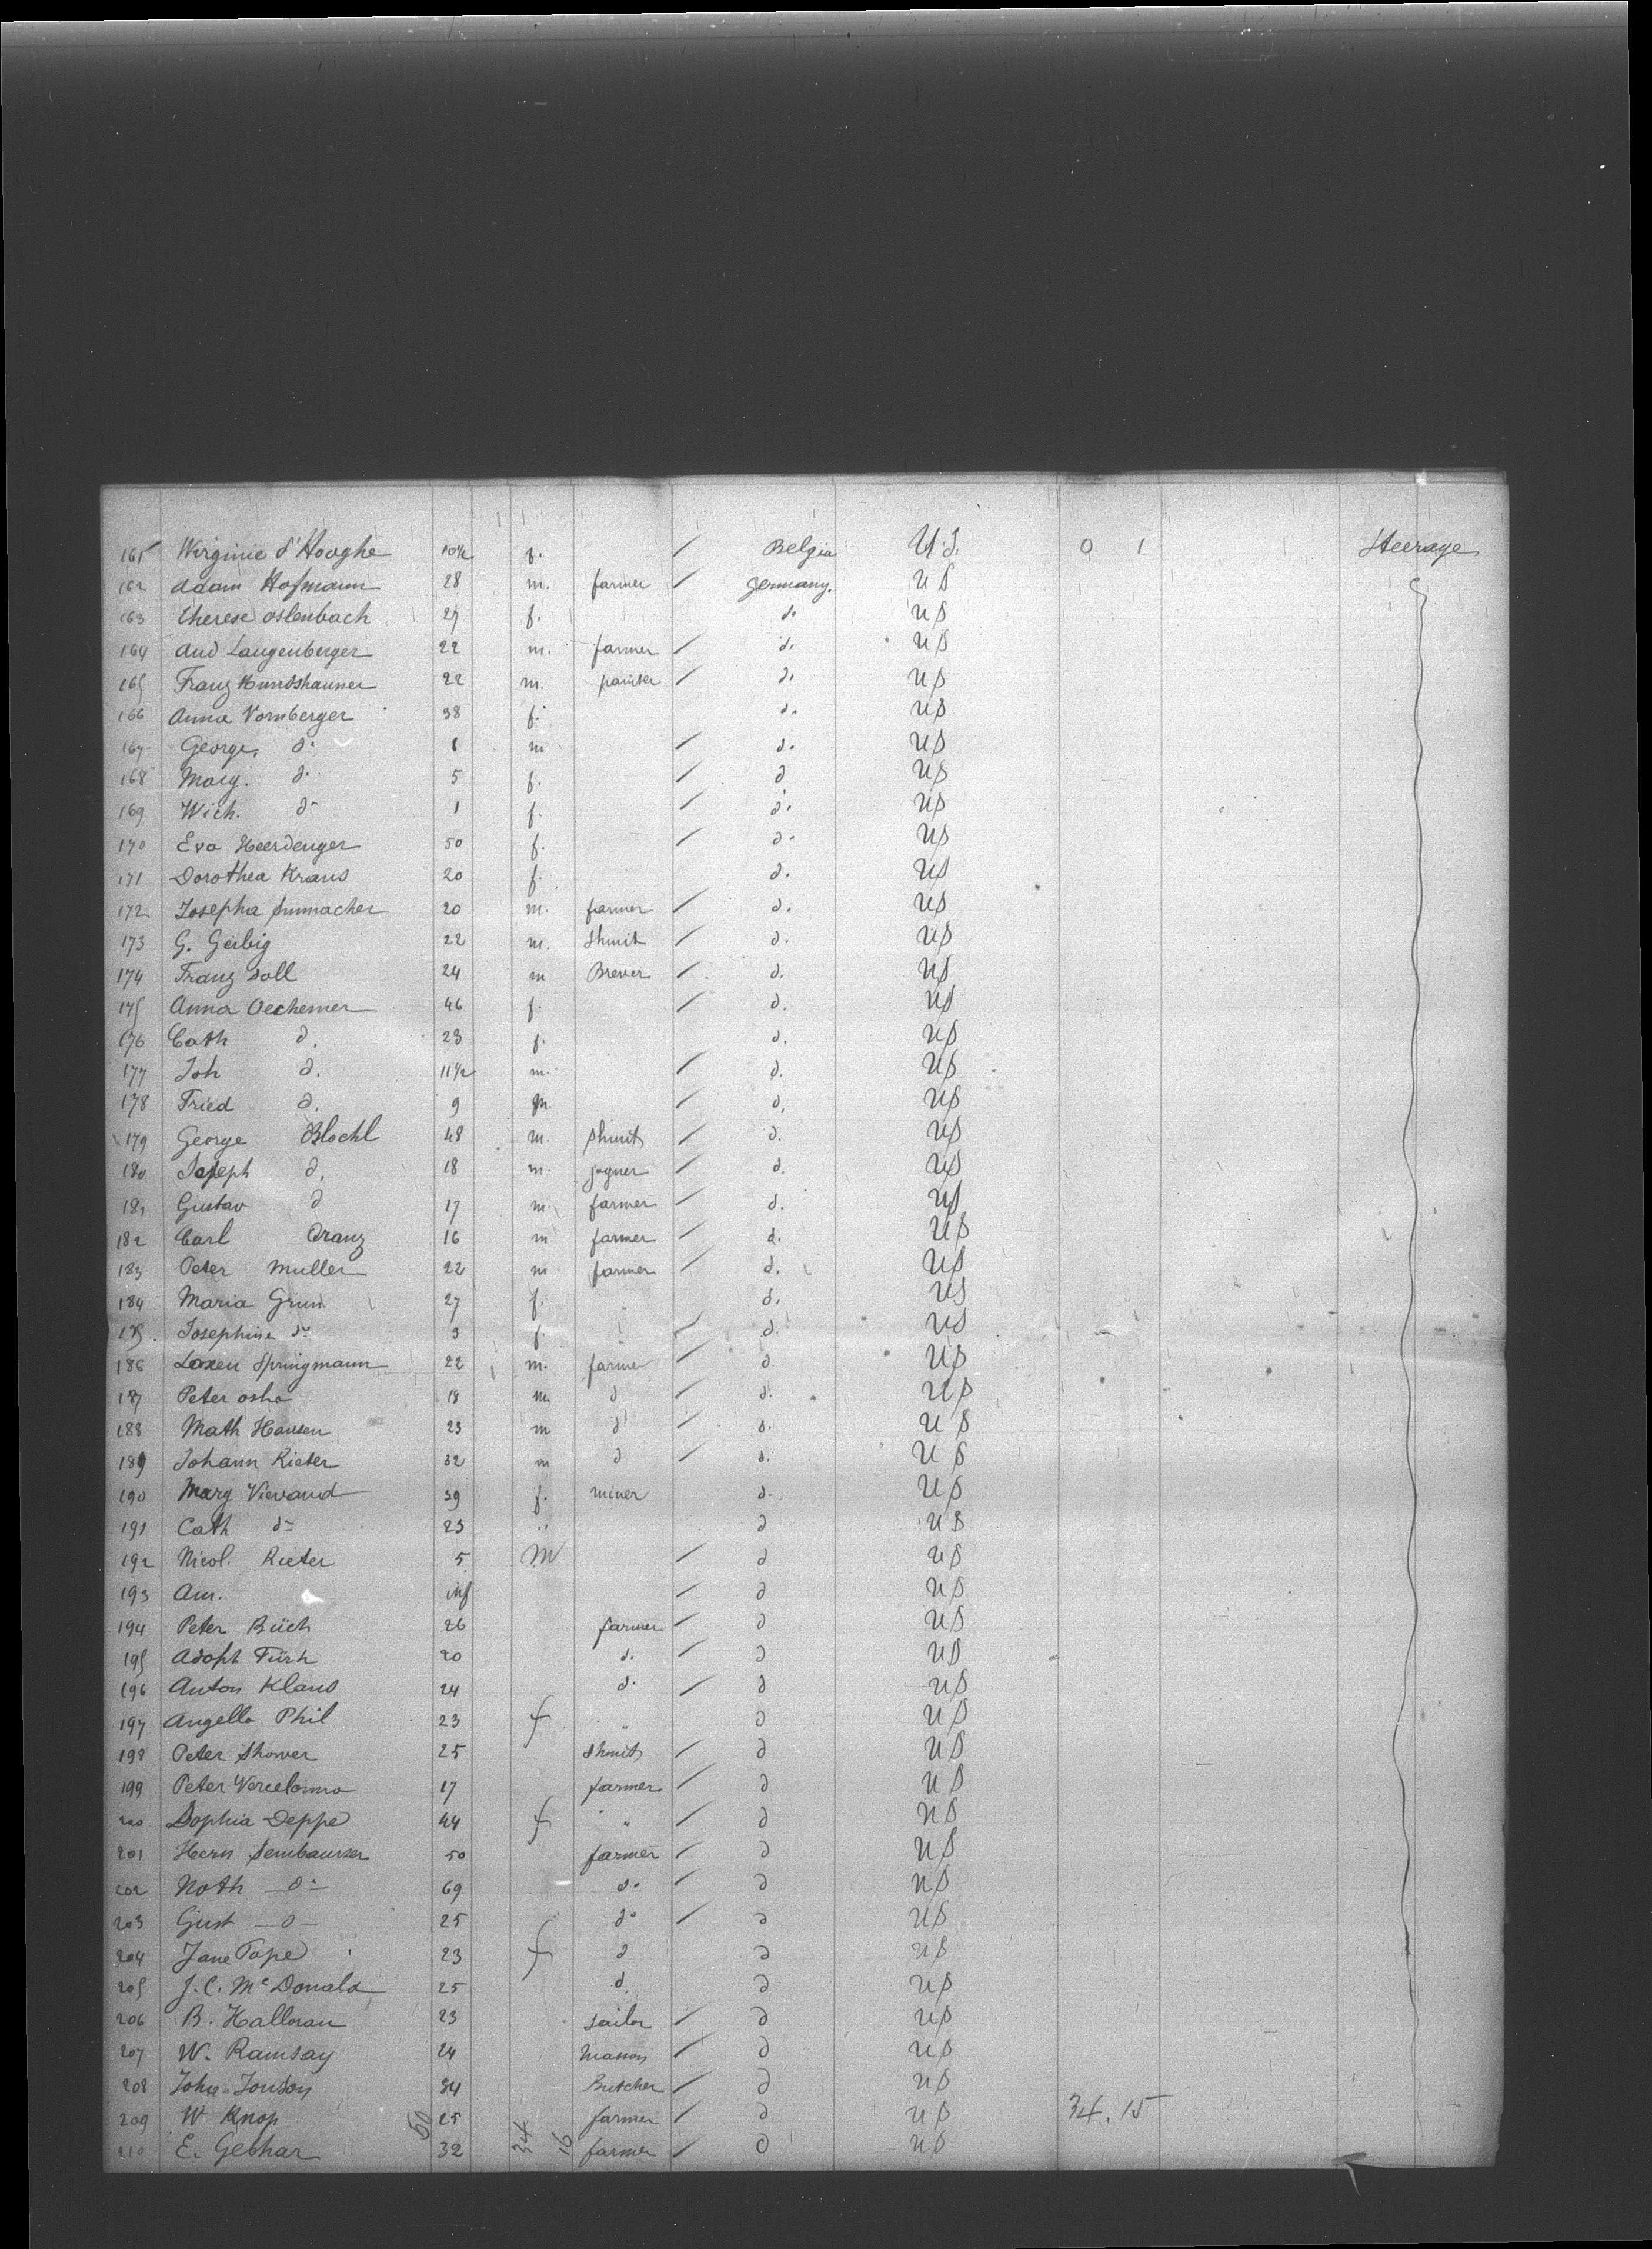 161 Virginie d'Hooghe 10½ f. / Belgia U.S. 0 1 Steerage
162 Adam Hofmann 28 m. farmer / Germany. U S
163 Therese Oslenbach 27 f. do U S
164 And Langenberger 22 m. farmer / do U S
165 Franz Hundshammer 22 m. painter / do U S
166 Anna Vornberger 38 f. do U S
167 George, do 1 m / do U S
168 Mary. do 5 f. / d U S
169 Wich. do 1 f. / do U S
170 Eva Heerdenger 50 f. / do U S
171 Dorothea Kraus 20 f. d. U S
172 Josepha Sumacher 20 m. farmer / d. U S
173 G. Geibig 22 m. Shmit / d. U S
174 Franz Doll 24 m Brever / d. U S
175 Anna Oechemer 46 f. / d. U S
176 Cath d. 23 f. d. U S
177 Joh d. 11½ m. / d. U S
178 Fried d. 9 m. / d. U S
179 George Blochl 48 m. Shmit / d. U S
180 Joseph d. 18 m. jogner / d. U S
181 Gustav d 17 m. farmer / d. U S
182 Carl Oranz 16 m farmer / d. U S
183 Peter Muller 22 m farmer / d. U S
184 Maria Grun 27 f. d. U S
185. Josephine do 3 f. / d. U S
186 Springmann 22 m. farmer / d U S
187 Peter 18 m. d / d. U S
188 Math Hansen 23 m d / d. U S
189 Johann Rieter 32 m d / d. U S
190 Mary Vievand 39 f. miner d. U S
191 Cath do 23 " d U S
192 Nicol. Rieter 5 M / d U S
193 Am. inf / d U S
194 Peter Büch 26 farmer / d U S
195 Adoph Fürh 20 d. / d U S
196 Anton Klaus 24 d. / d U S
197 Angella Phil 23 f " d U S
198 Peter Shower 25 Shmit / d U S
199 Peter 17 farmer / d U S
200 Sophia Deppe 44 f " / d U S
201 Hern 50 farmer / d U S
202 Noth do 69 do / d U S
203 Gust d 25 do / d U S
204 Jane Pape 23 f d d U S
205 J. C. McDonald 25 d. d U S
206 B. Halloran 23 sailor / d U S
207 W. Ramsay 24 Mason / d U S
208 John Jonson 34 Butcher / d U S
209 W Knop 25 farmer / d U S 34. 15
210 E. Gebhar 32 farmer / d U S
50 34 16